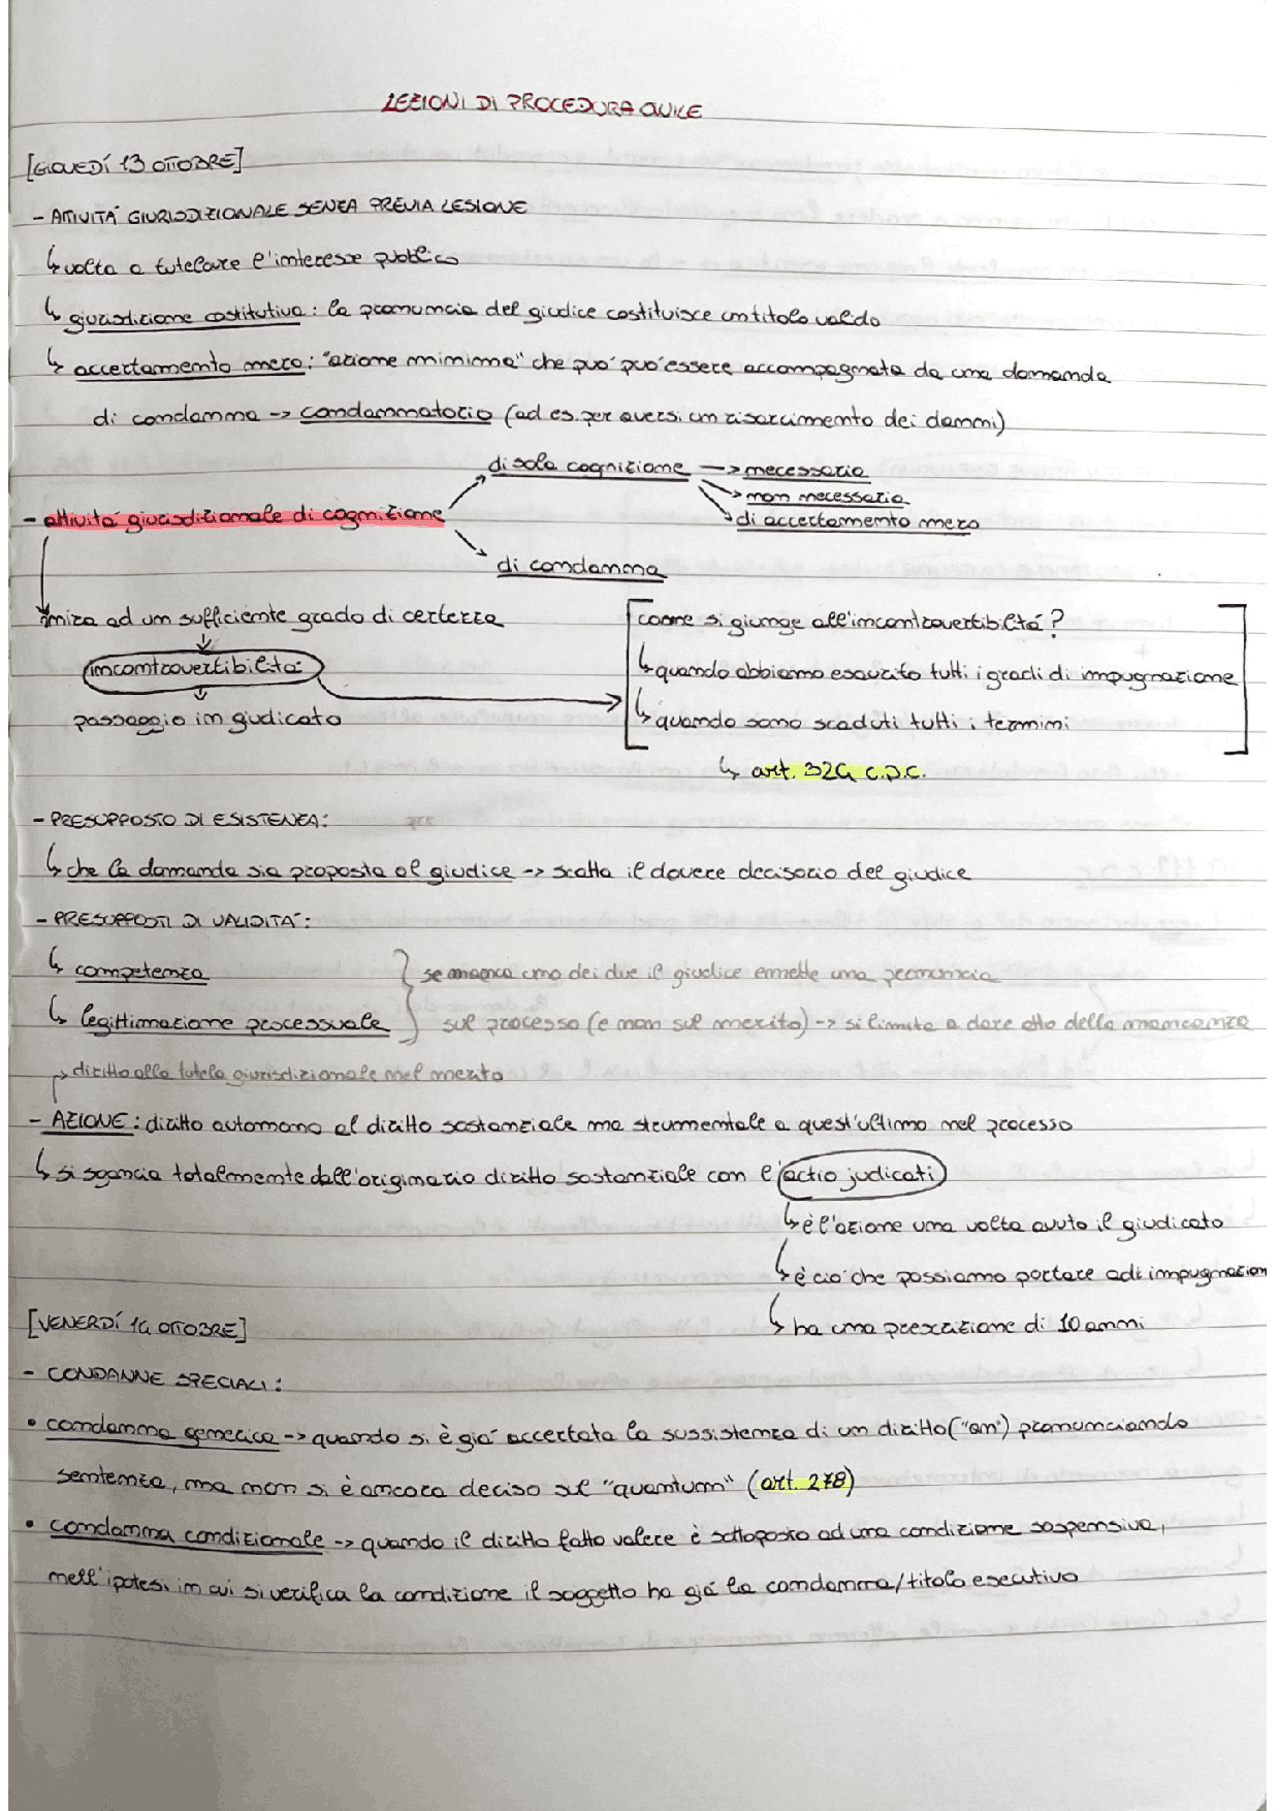 LEZIONI DI PROCEDURA CIVILE
[GIOVEDÍ 13 OTTOBRE]
- ATTIVITÀ GIURISDIZIONALE SENZA PREVIA LESIONE
↳ volta a tutelare l'interesse pubblico
↳ giurisdizione costitutiva: la pronuncia del giudice costituisce un titolo valido
↳ accertamento mero: "azione minima" che può può essere accompagnata da una domanda
di condanna -> condannatorio (ad es. per aversi un risarcimento dei danni)
di sola cognizione -> necessaria
-> non necessaria
- attività giurisdizionale di cognizione
-> di accertamento mero
di condanna
mira ad un sufficiente grado di certezza
[come si giunge all'incontrovertibilità?
incontrovertibilità
↳ quando abbiamo esaurito tutti i gradi di impugnazione
passaggio in giudicato
↳ quando sono scaduti tutti i termini]
↳ art. 324 c.p.c.
- PRESUPPOSTO DI ESISTENZA:
↳ che la domanda sia proposta al giudice -> scatta il dovere decisorio del giudice
- PRESUPPOSTI DI VALIDITÀ:
↳ competenza } se manca uno dei due il giudice emette una pronuncia
↳ legittimazione processuale } sul processo (e non sul merito) -> si limita a dare atto della mancanza
-> diritto alla tutela giurisdizionale nel merito
- AZIONE: diritto autonomo al diritto sostanziale ma strumentale a quest'ultimo nel processo
↳ si sgancia totalmente dall'originario diritto sostanziale con l'actio judicati
↳ è l'azione una volta avuto il giudicato
↳ è ciò che possiamo portare ad impugnazion
[VENERDÍ 14 OTTOBRE]
↳ ha una prescrizione di 10 anni
- CONDANNE SPECIALI:
• condanna generica -> quando si è già accertata la sussistenza di un diritto ("an") pronunciando
sentenza, ma non si è ancora deciso sul "quantum" (art. 278)
• condanna condizionale -> quando il diritto fatto valere è sottoposto ad una condizione sospensiva,
nell'ipotesi in cui si verifica la condizione il soggetto ha già la condanna/titolo esecutivo